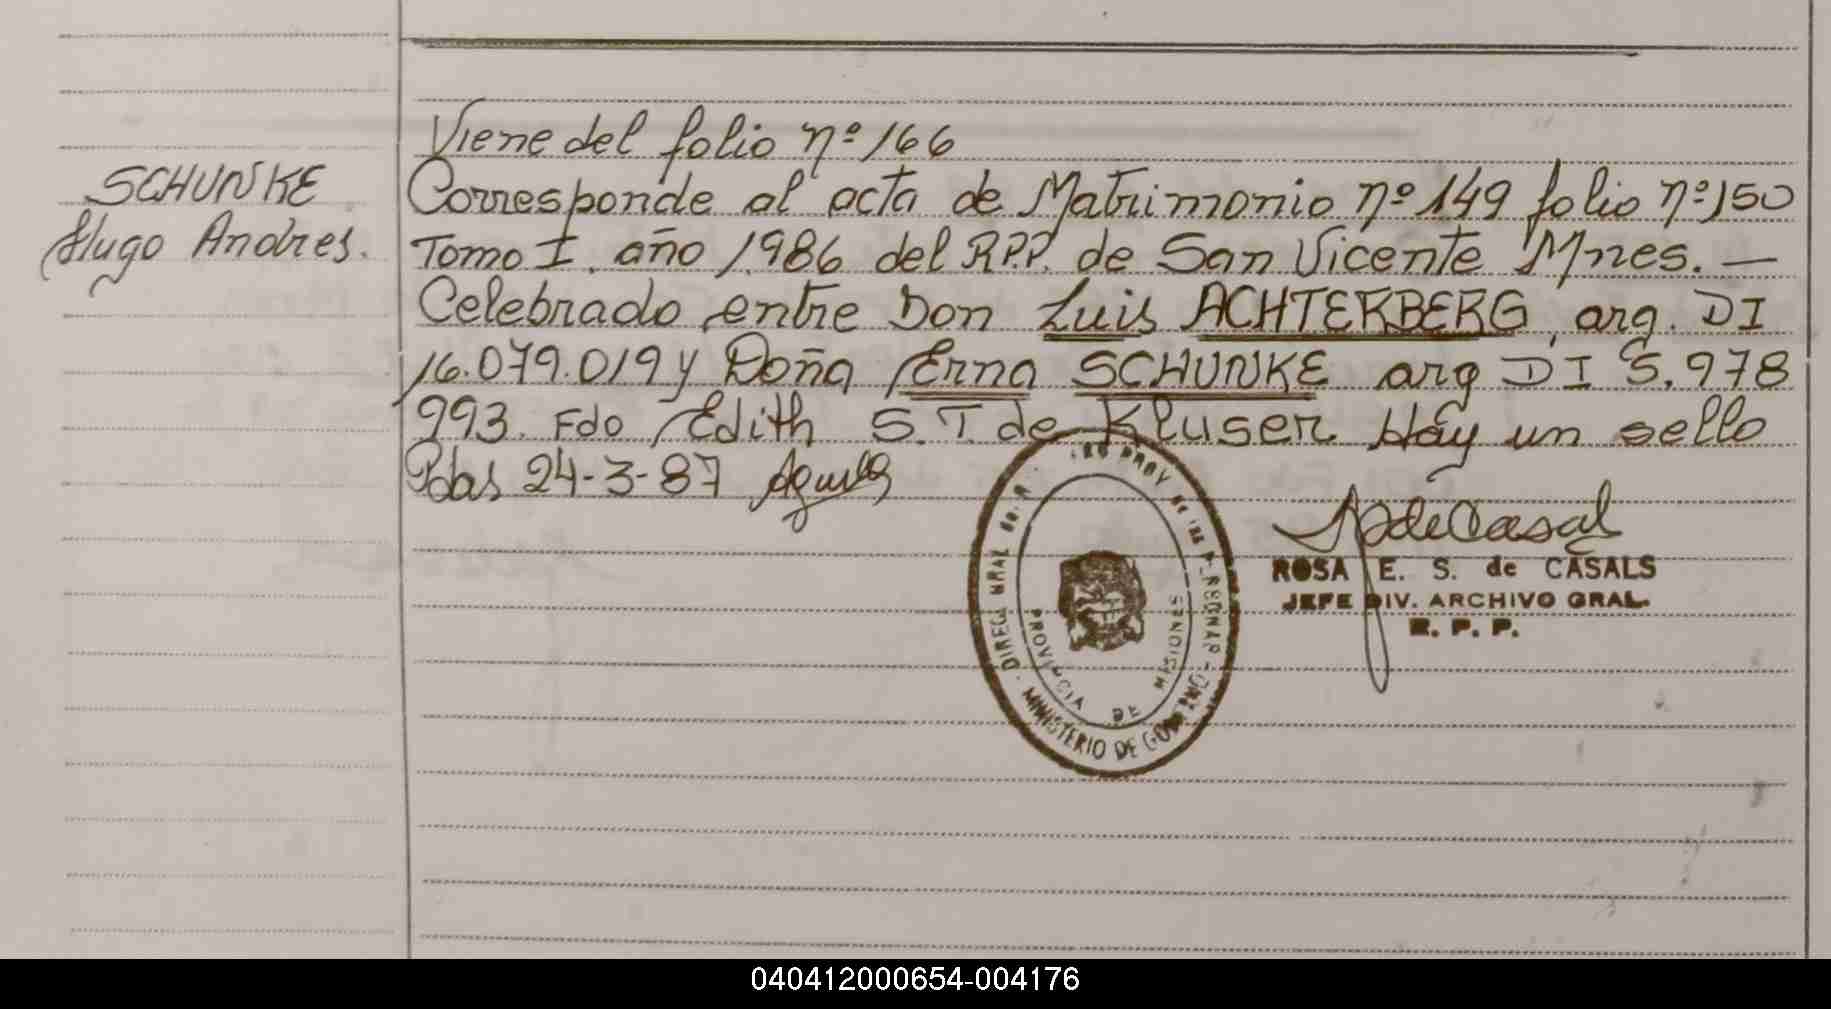 Viene del folio nº 166
SCHUNKE
Hugo Andres.
Corresponde al acta de Matrimonio nº 149 folio nº 150
Tomo I. año 1.986 del R.P.P. de San Vicente Mnes. —
Celebrado entre Don Luis ACHTERBERG, arg. DI
16.079.019 y Doña Erna SCHUNKE arg DI 5.978
993. Fdo Edith S. T. de Kluser Hay un sello
Pdas 24-3-87
ROSA E. S. de CASALS
JEFE DIV. ARCHIVO GRAL.
R. P. P.
DIREC. GRAL del R. PROV de las PERSONAS
MINISTERIO DE GOBIERNO
PROVINCIA DE MISIONES
040412000654-004176